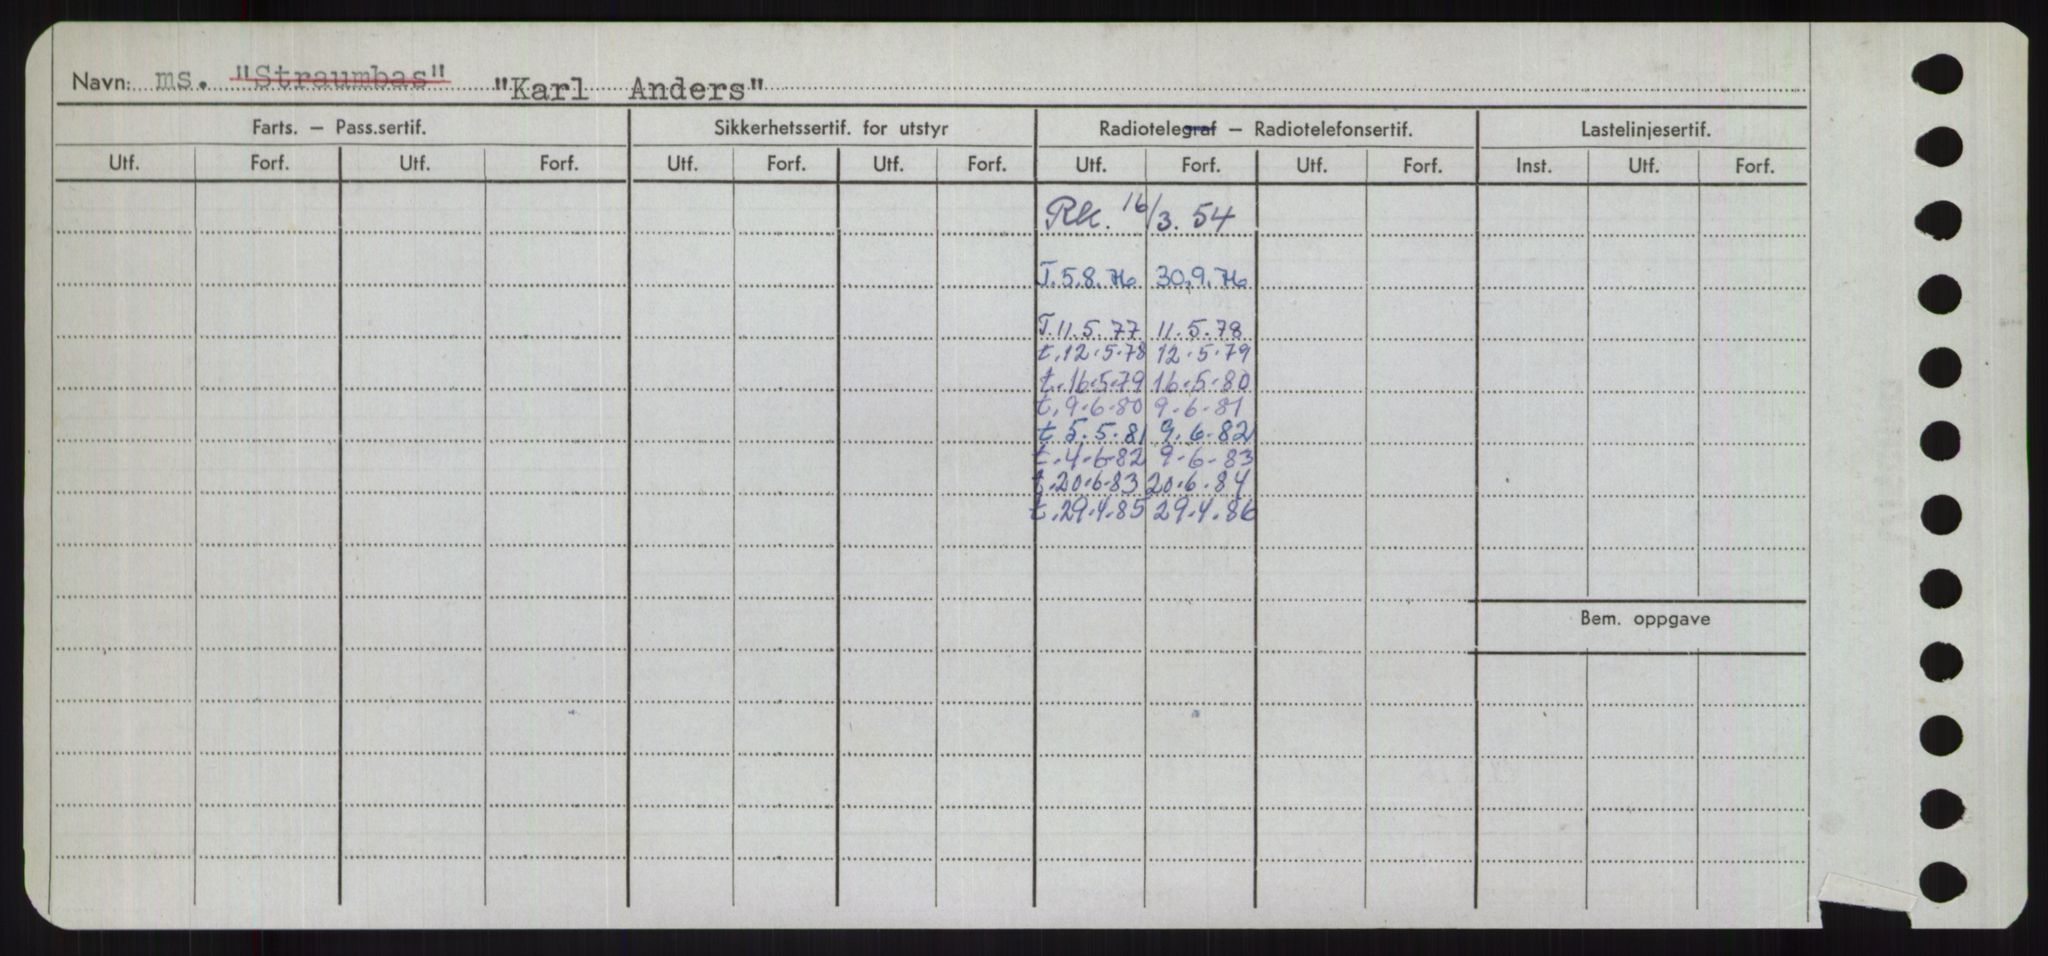 Navn: ms. "Straumbas" "Karl Anders"
Farts. – Pass.sertif. Sikkerhetssertif. for utstyr Radiotelegraf – Radiotelefonsertif. Lastelinjesertif.
Utf. Forf. Utf. Forf. Utf. Forf. Utf. Forf. Utf. Forf. Utf. Forf. Inst. Utf. Forf.
Rk. 16/3. 54
T. 5.8.76 30.9.76
T. 11.5.77 11.5.78
t. 12.5.78 12.5.79
t. 16.5.79 16.5.80
t. 9.6.80 9.6.81
t 5.5.81 9.6.82
t. 4.6.82 9.6.83
t. 20.6.83 20.6.84
t. 29.4.85 29.4.86
Bem. oppgave